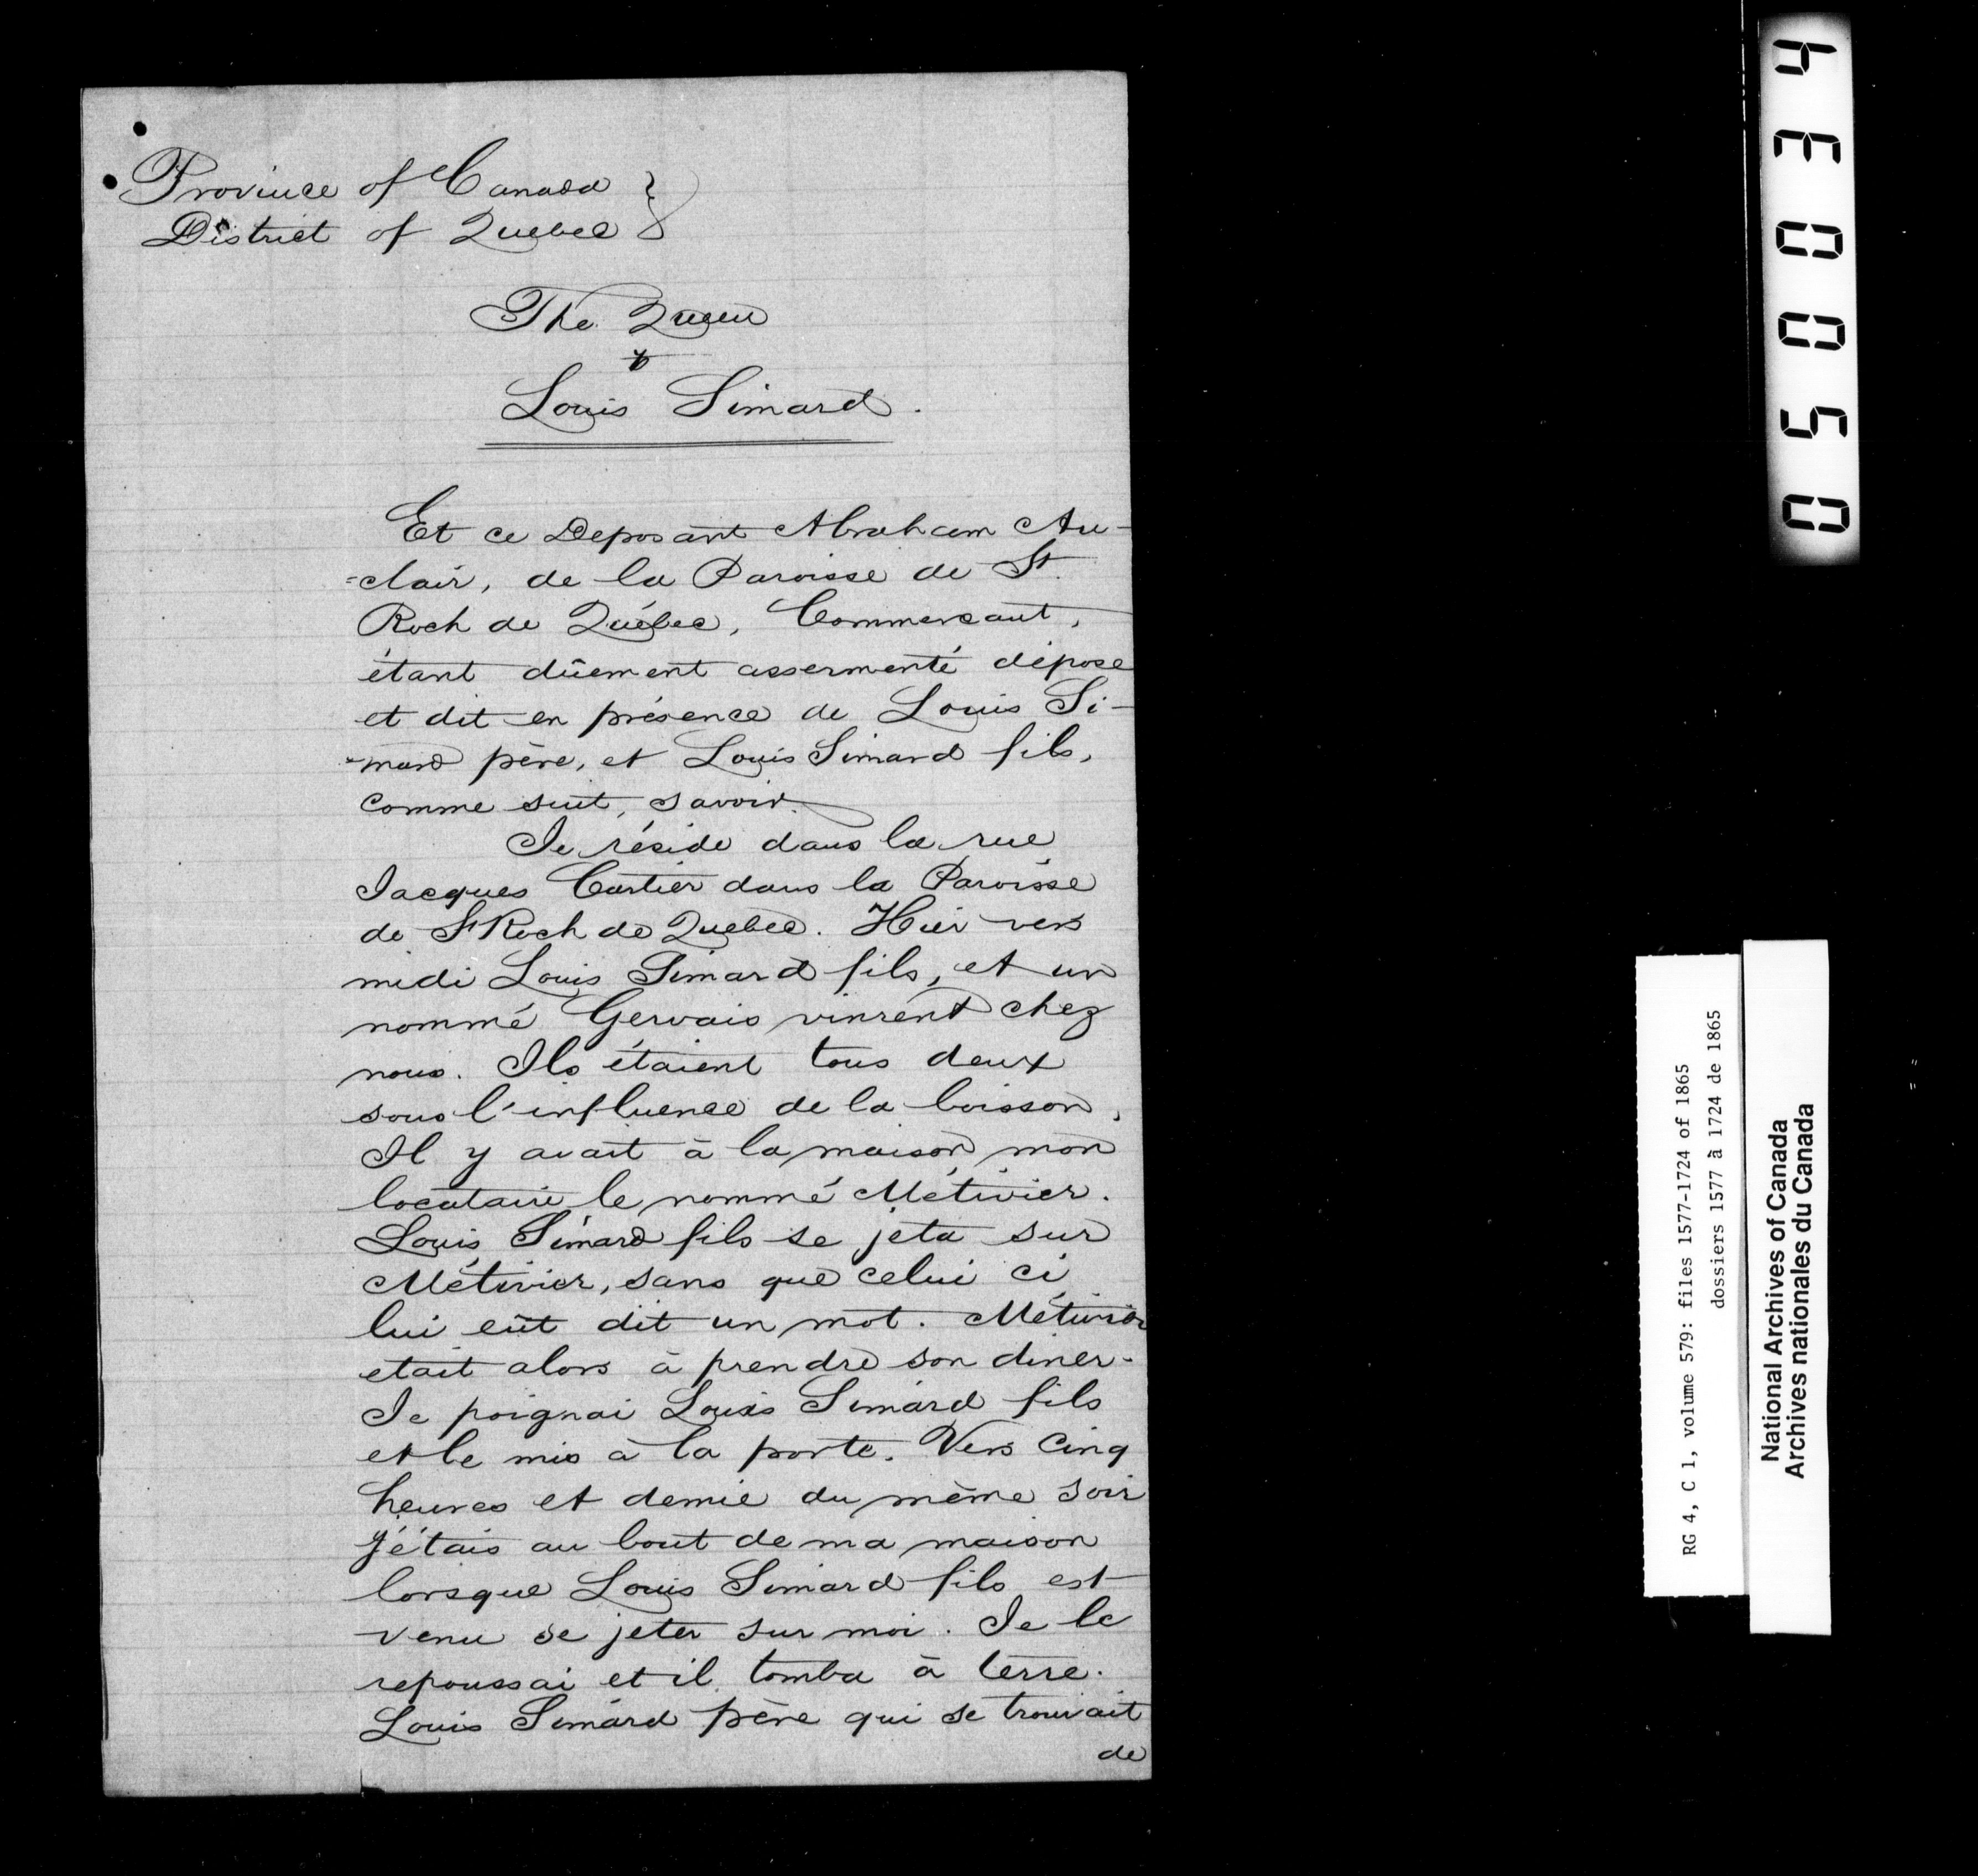 Province of Canada }
District of Quebec }
The Queen
vs
Louis Simard.
Et ce Deposant Abraham Au-
=clair, de la Paroisse de St.
Roch de Québec, Commercant,
étant dûement assermenté dépose
et dit en présence de Louis Si-
-mard père, et Louis Simard fils,
comme suit, savoir.
Je réside dans la rue
Jacques Cartier dans la Paroisse
de St Roch de Quebec. Hier vers
midi Louis Simard fils, et un
nommé Gervais vinrent chez
nous. Ils étaient tous deux
sous l'influence de la boisson.
Il y avait à la maison mon
locataire le nommé Métivier.
Louis Simard fils se jeta sur
Métivier, sans que celui ci
lui eût dit un mot. Métivier
etait alors à prendre son diner.
Je poignai Louis Simard fils
et le mis à la porte. Vers Cinq
heures et demie du même soir
j'étais au bout de ma maison
lorsque Louis Simard fils est
venu se jeter sur moi. Je le
repoussai et il tomba à terre.
Louis Simard père qui se trouvait
de
05004
3
RG 4, C 1, volume 579: files 1577-1724 of 1865
dossiers 1577 à 1724 de 1865
National Archives of Canada
Archives nationales du Canada